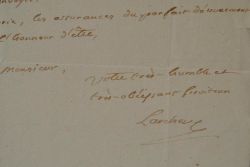 les assurances du parfait dévouement
l'honneur d'être,
Monsieur,
votre très-humble et
très-obéissant serviteur
Larcher